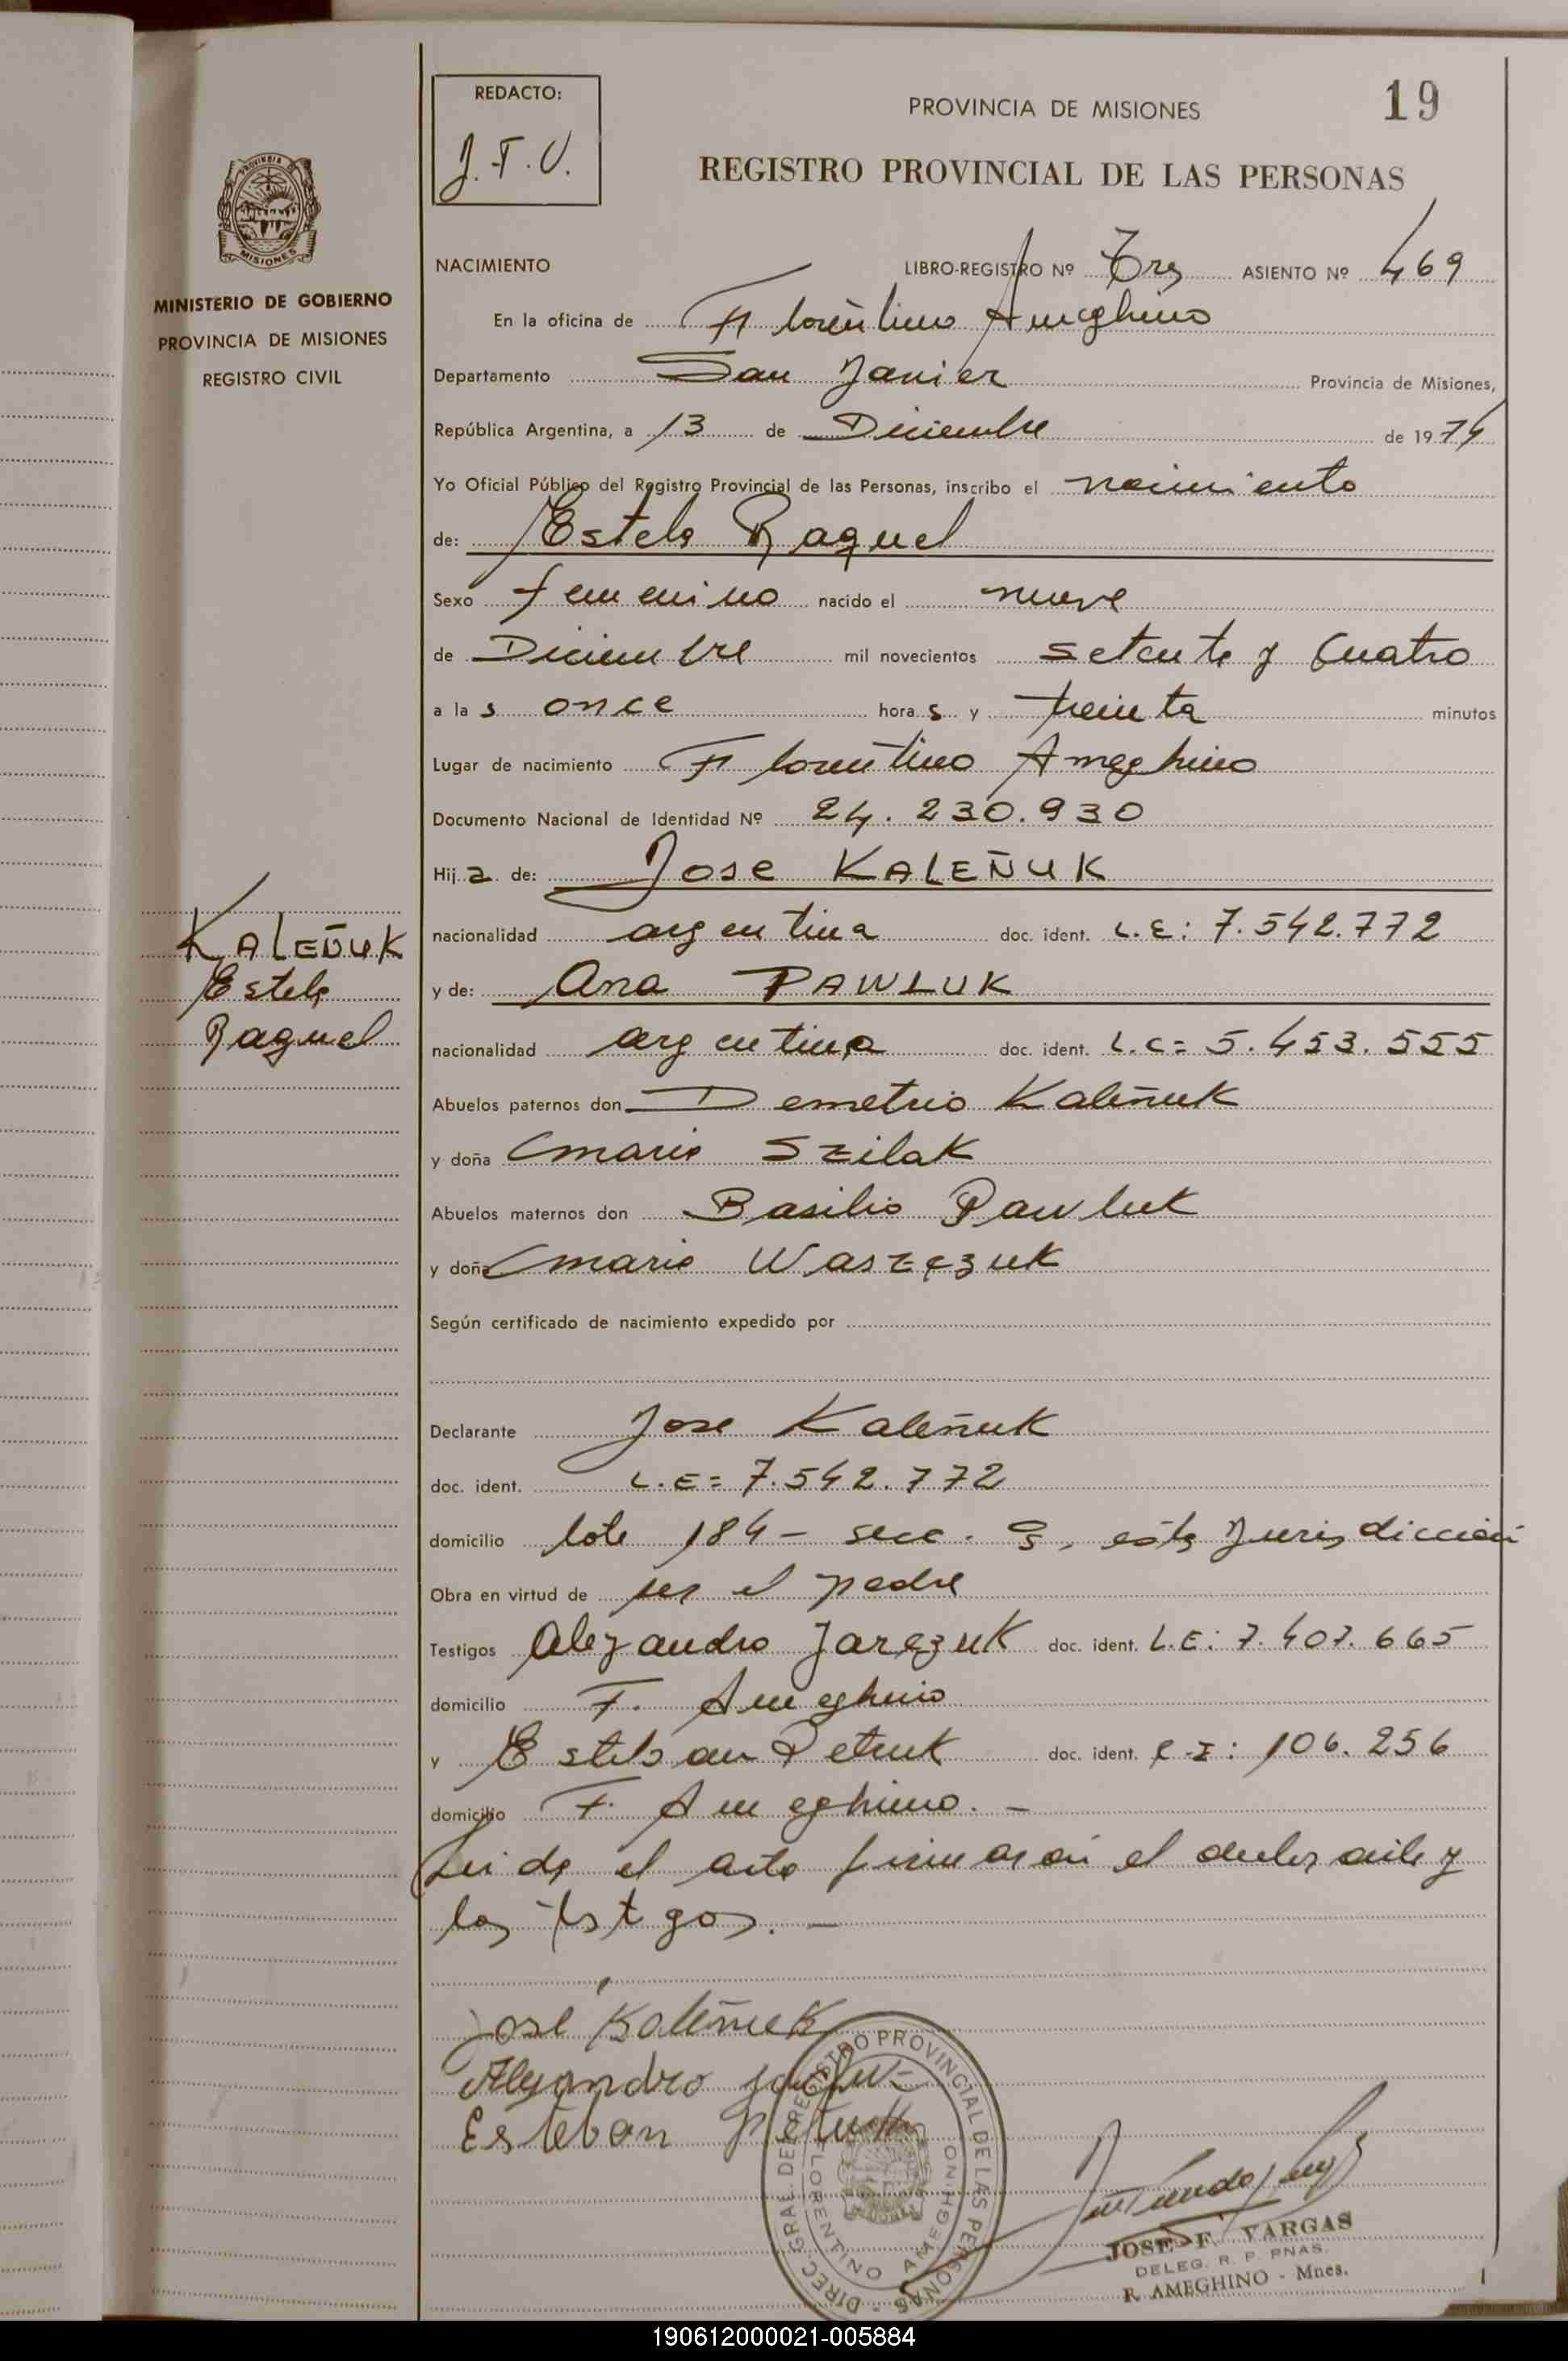 19
REDACTO:
J.F.V.
PROVINCIA DE MISIONES
REGISTRO PROVINCIAL DE LAS PERSONAS
PROVINCIA DE
MISIONES
MINISTERIO DE GOBIERNO
PROVINCIA DE MISIONES
REGISTRO CIVIL
NACIMIENTO LIBRO-REGISTRO Nº Tres ASIENTO Nº 469
En la oficina de Florentino Ameghino
Departamento San Javier Provincia de Misiones,
República Argentina, a 13 de Diciembre de 1974
Yo Oficial Público del Registro Provincial de las Personas, inscribo el nacimiento
de: Estela Raquel
Sexo femenino nacido el nueve
de Diciembre mil novecientos setenta y Cuatro
a la s once hora s y treinta minutos
Lugar de nacimiento Florentino Ameghino
Documento Nacional de Identidad Nº 24.230.930
Hij a de: Jose KALEÑUK
KALEÑUK
Estela
Raquel
nacionalidad argentina doc. ident. L.E: 7.542.772
y de: Ana PAWLUK
nacionalidad argentina doc. ident. L.C= 5.453.555
Abuelos paternos don Demetrio Kaleñuk
y doña Maria Szilak
Abuelos maternos don Basilio Pawluk
y doña Maria Waszczuk
Según certificado de nacimiento expedido por
Declarante Jose Kaleñuk
doc. ident. L.E= 7.542.772
domicilio lote 184 - secc. esta Jurisdiccion
Obra en virtud de ser el padre
Testigos Alejandro Jarczuk doc. ident. L.E: 7.407.665
domicilio F. Ameghino
y Esteban Petruk doc. ident. C.I: 106.256
domicilio F. Ameghino. -
Leida el acta firmaron el declarante y
los testigos. -
José Kaleñuk
Alejandro
Esteban Petruk
DIREC. GRAL. DEL REGISTRO PROVINCIAL DE LAS PERSONAS
FLORENTINO AMEGHINO
JOSE F. VARGAS
DELEG. R. P. PNAS.
F. AMEGHINO - Mnes.
190612000021-005884